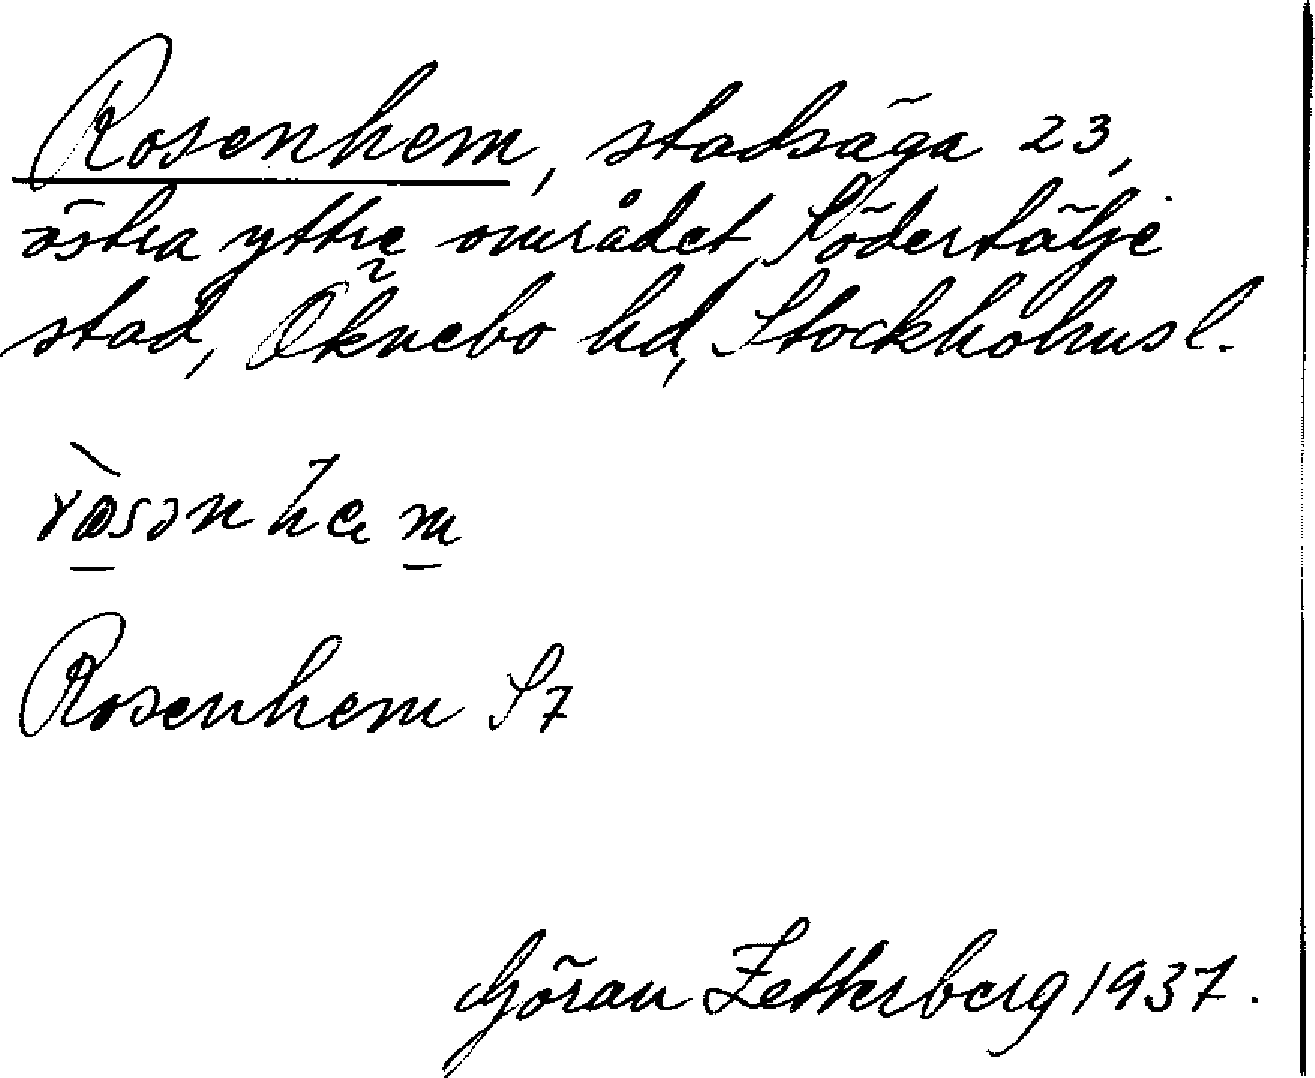 Rosenhem, stadsäga 23,
östra yttre området, Södertälje
stad, Öknebo hd, Stockholmsl.
Rosenhem S7
Göran Zetterberg 1937.